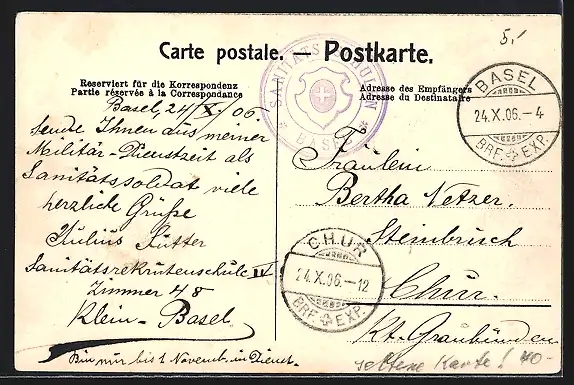 5.-
Carte postale. — Postkarte.
Reserviert für die Korrespondenz
Partie réservée à la Correspondance
Adresse des Empfängers
Adresse du Destinataire
SANITÄTS
BASEL
BASEL
24.X.06.-4
BRF. EXP.
Basel, 24/X. 06.
sende Ihnen aus meiner
Militär-Dienstzeit als
Sanitätssoldat viele
herzliche Grüsse
Julius Sutter
Sanitätsrekrutenschule IV
Zimmer 48
Klein-Basel
Bin nur bis 1 Novemb. in Dienst.
Fräulein
Bertha Netzer.
Steinbruch
Chur.
Kt. Graubünden
CHUR
24.X.06.-12
BRF. EXP.
seltene Karte! 40-